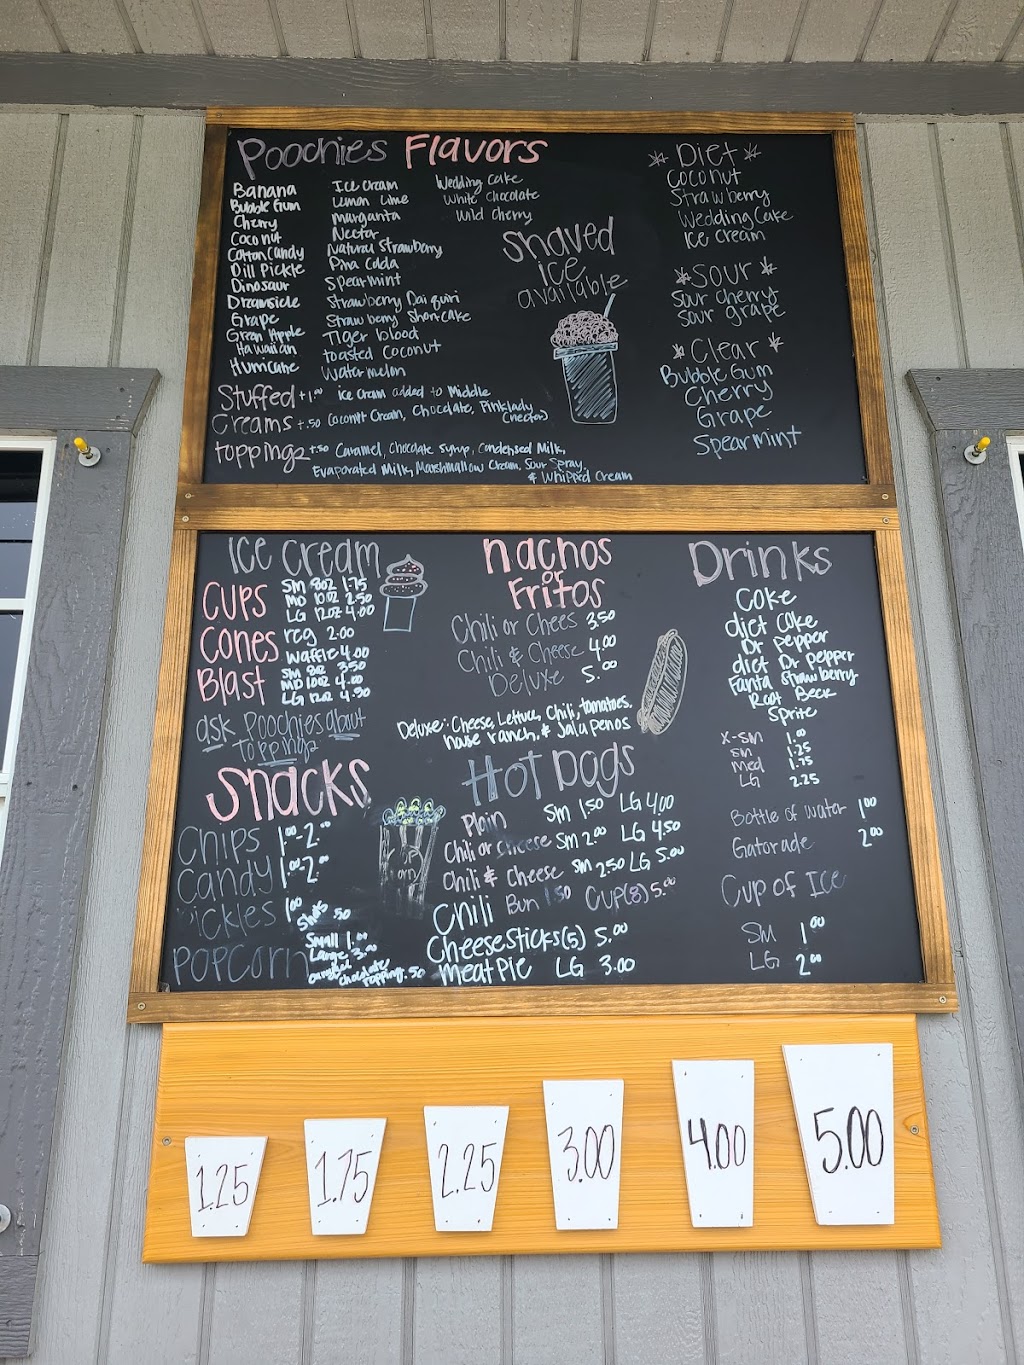 Poochies Flavors
Banana
Bubble Gum
Cherry
Coconut
Cotton Candy
Dill Pickle
Dinosaur
Dreamsicle
Grape
Green Apple
Hawaiian
Hurricane
Ice Cream
Lemon Lime
Margarita
Nectar
Natural Strawberry
Pina Colda
Spearmint
Strawberry Daiquiri
Strawberry Shortcake
Tiger blood
toasted Coconut
Watermelon
Wedding Cake
White Chocolate
Wild Cherry
Shaved
ice
available
Diet
Coconut
Strawberry
Wedding Cake
Ice Cream
Sour
Sour Cherry
Sour grape
Clear
Bubble Gum
Cherry
Grape
Spearmint
Stuffed +1.00 ice Cream added to Middle
Creams +.50 Coconut Cream, Chocolate, Pink lady
(nectar)
toppings +.50 Caramel, Chocolate Syrup, Condensed Milk,
Evaporated Milk, Marshmallow Cream, Sour Spray,
& Whipped Cream
Ice Cream
Cups
SM 8oz 1.75
MD 10oz 2.50
LG 12oz 4.00
Cones
reg 2.00
Waffle 4.00
Blast
SM 8oz 3.50
MD 10oz 4.00
LG 12oz 4.50
ask Poochies about
toppings
Snacks
Chips 1.00-2.00
Candy 1.00-2.00
Pickles 1.00
Shots .50
Popcorn
Small 1.00
Large 3.00
chocolate
topping .50
nachos
or
Fritos
Chili or Chees 3.50
Chili & Cheese 4.00
Deluxe 5.00
Deluxe: Cheese, Lettuce, Chili, tomatoes,
house ranch, & Jalapenos
Hot Dogs
Plain Sm 1.50 LG 4.00
Chili or Cheese Sm 2.00 LG 4.50
Chili & Cheese Sm 2.50 LG 5.00
Chili Bun 1.50 Cup(8) 5.00
Cheesesticks(5) 5.00
meatPie LG 3.00
Drinks
Coke
diet Coke
Dr Pepper
diet Dr pepper
Fanta Strawberry
Root Beer
Sprite
X-SM 1.00
SM 1.25
Med 1.75
LG 2.25
Bottle of water 1.00
Gatorade 2.00
Cup of Ice
SM 1.00
LG 2.00
1.25
1.75
2.25
3.00
4.00
5.00